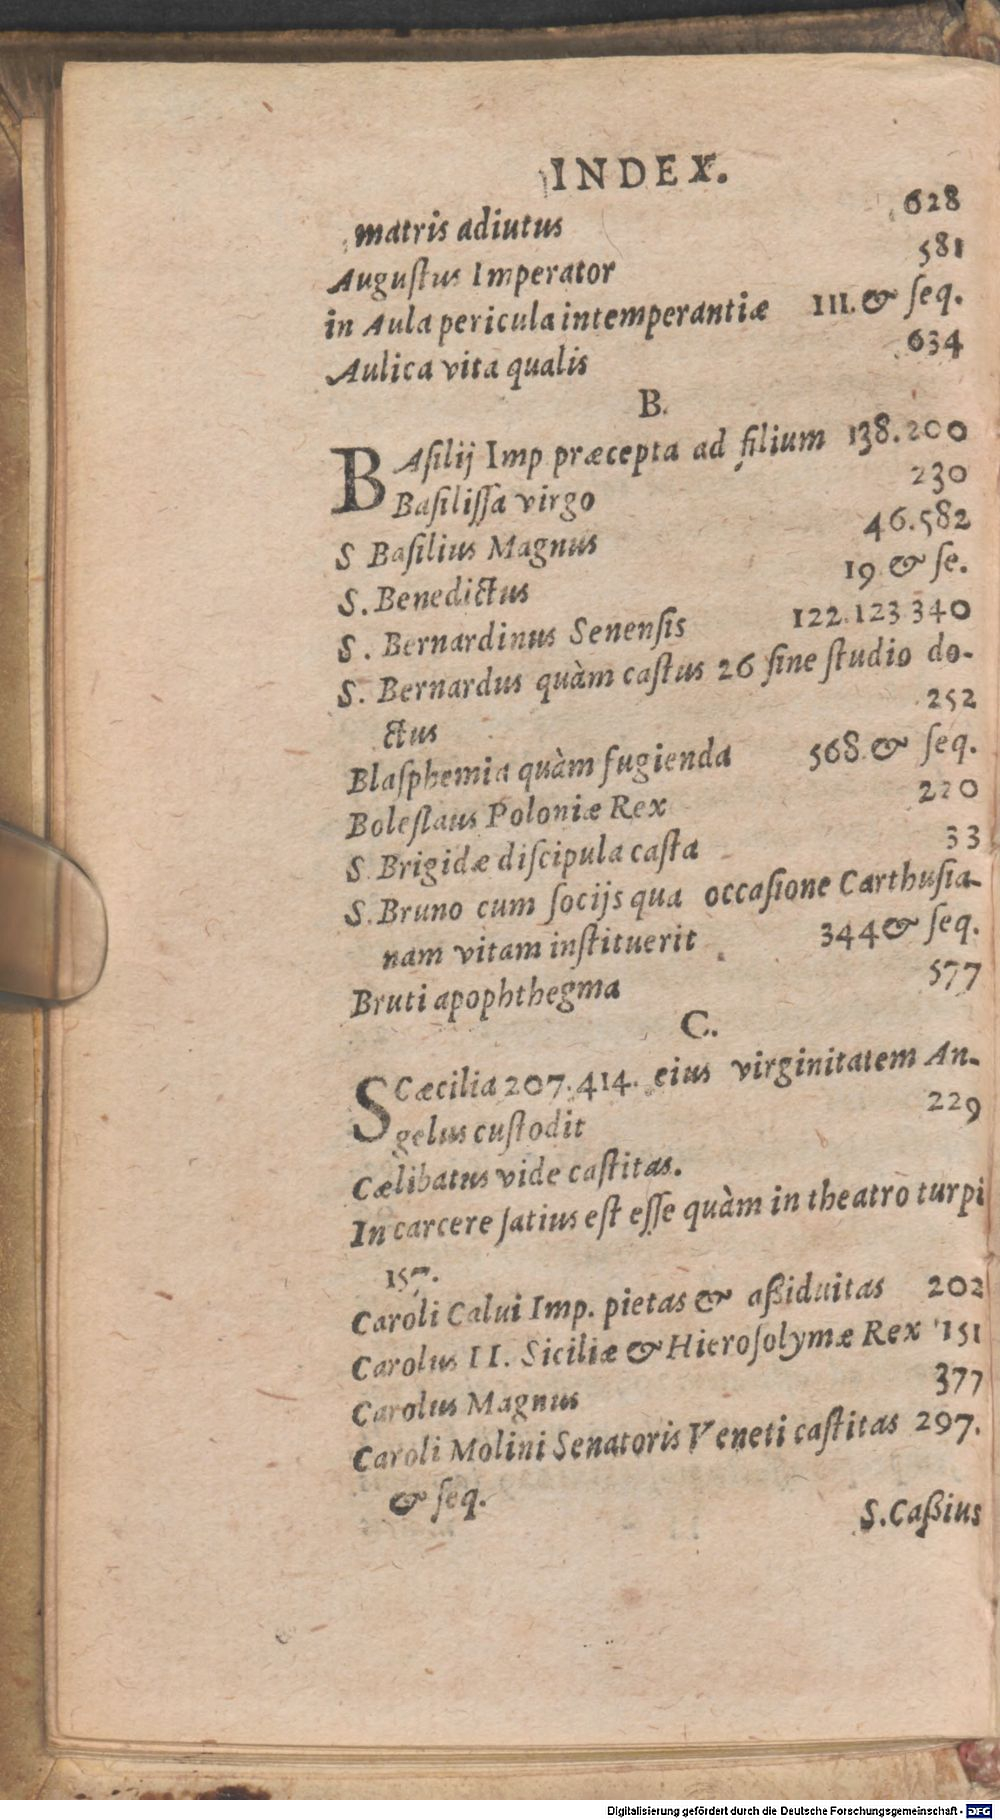 INDEX.
matris adiutus 628
Auguſtus Imperator 581
in Aula pericula intemperantiæ 111. & ſeq.
Aulica vita qualis 634
B.
BAſilij Imp præcepta ad filium 138.200
Baſiliſſa virgo 230
S Baſilius Magnus 46.582
S. Benedictus 19 & ſe.
S. Bernardinus Senenſis 122.123 340
S. Bernardus quàm caſtus 26 ſine ſtudio do-
ctus 252
Blaſphemia quàm fugienda 568. & ſeq.
Boleſlaus Poloniæ Rex 220
S. Brigidæ diſcipula caſta 33
S. Bruno cum ſocijs qua occaſione Carthuſia-
nam vitam inſtituerit 344 & ſeq.
Bruti apophthegma 577
C.
S Cæcilia 207.414. eius virginitatem An-
gelus cuſtodit 229
Cælibatus vide caſtitas.
In carcere ſatius eſt eſſe quàm in theatro turpi
157.
Caroli Calui Imp. pietas & aßiduitas 202
Carolus II. Siciliæ & Hieroſolymæ Rex 151
Carolus Magnus 377
Caroli Molini Senatoris Veneti caſtitas 297.
& ſeq.
S. Caßius
Digitalisierung gefördert durch die Deutsche Forschungsgemeinschaft - DFG